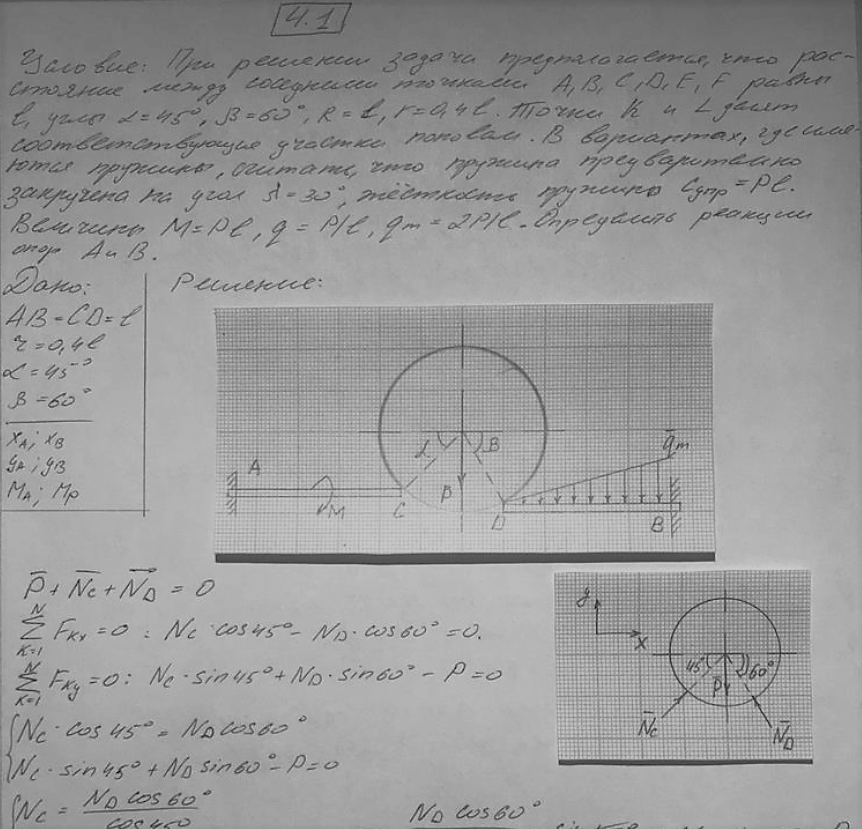 4.1
Условие: При решении задачи предполагается, что рас-
стояние между соседними точками A, B, C, D, E, F равны
l, углы α=45°, β=60°, R=l, r=0,4l. Точки K и L делят
соответствующие участки пополам. В вариантах, где име-
ются пружины, считать, что пружина предварительно
закручена на угол λ=30°, жёсткость пружины Cупр=Pl.
Величины M=Pl, q=P/l, qm=2P/l. Определить реакции
опор A и B.
Дано:
Решение:
AB=CD=l
r=0,4l
α=45°
β=60°
xA; xB
yA; yB
MA; Mp
α
β
q̄m
A
M
C
P̄
D
B
P̄ + N̄c + N̄D = 0
N
∑ Fkx=0 : Nc·cos45° − ND·cos60°=0.
K=1
N
∑ Fky=0: Nc·sin45°+ND·sin60° − P=0
K=1
y
x
45°
60°
P̄
N̄c
N̄D
{Nc·cos45°=NDcos60°
Nc·sin45°+NDsin60°−P=0
{Nc = NDcos60°
cos45°
NDcos60°